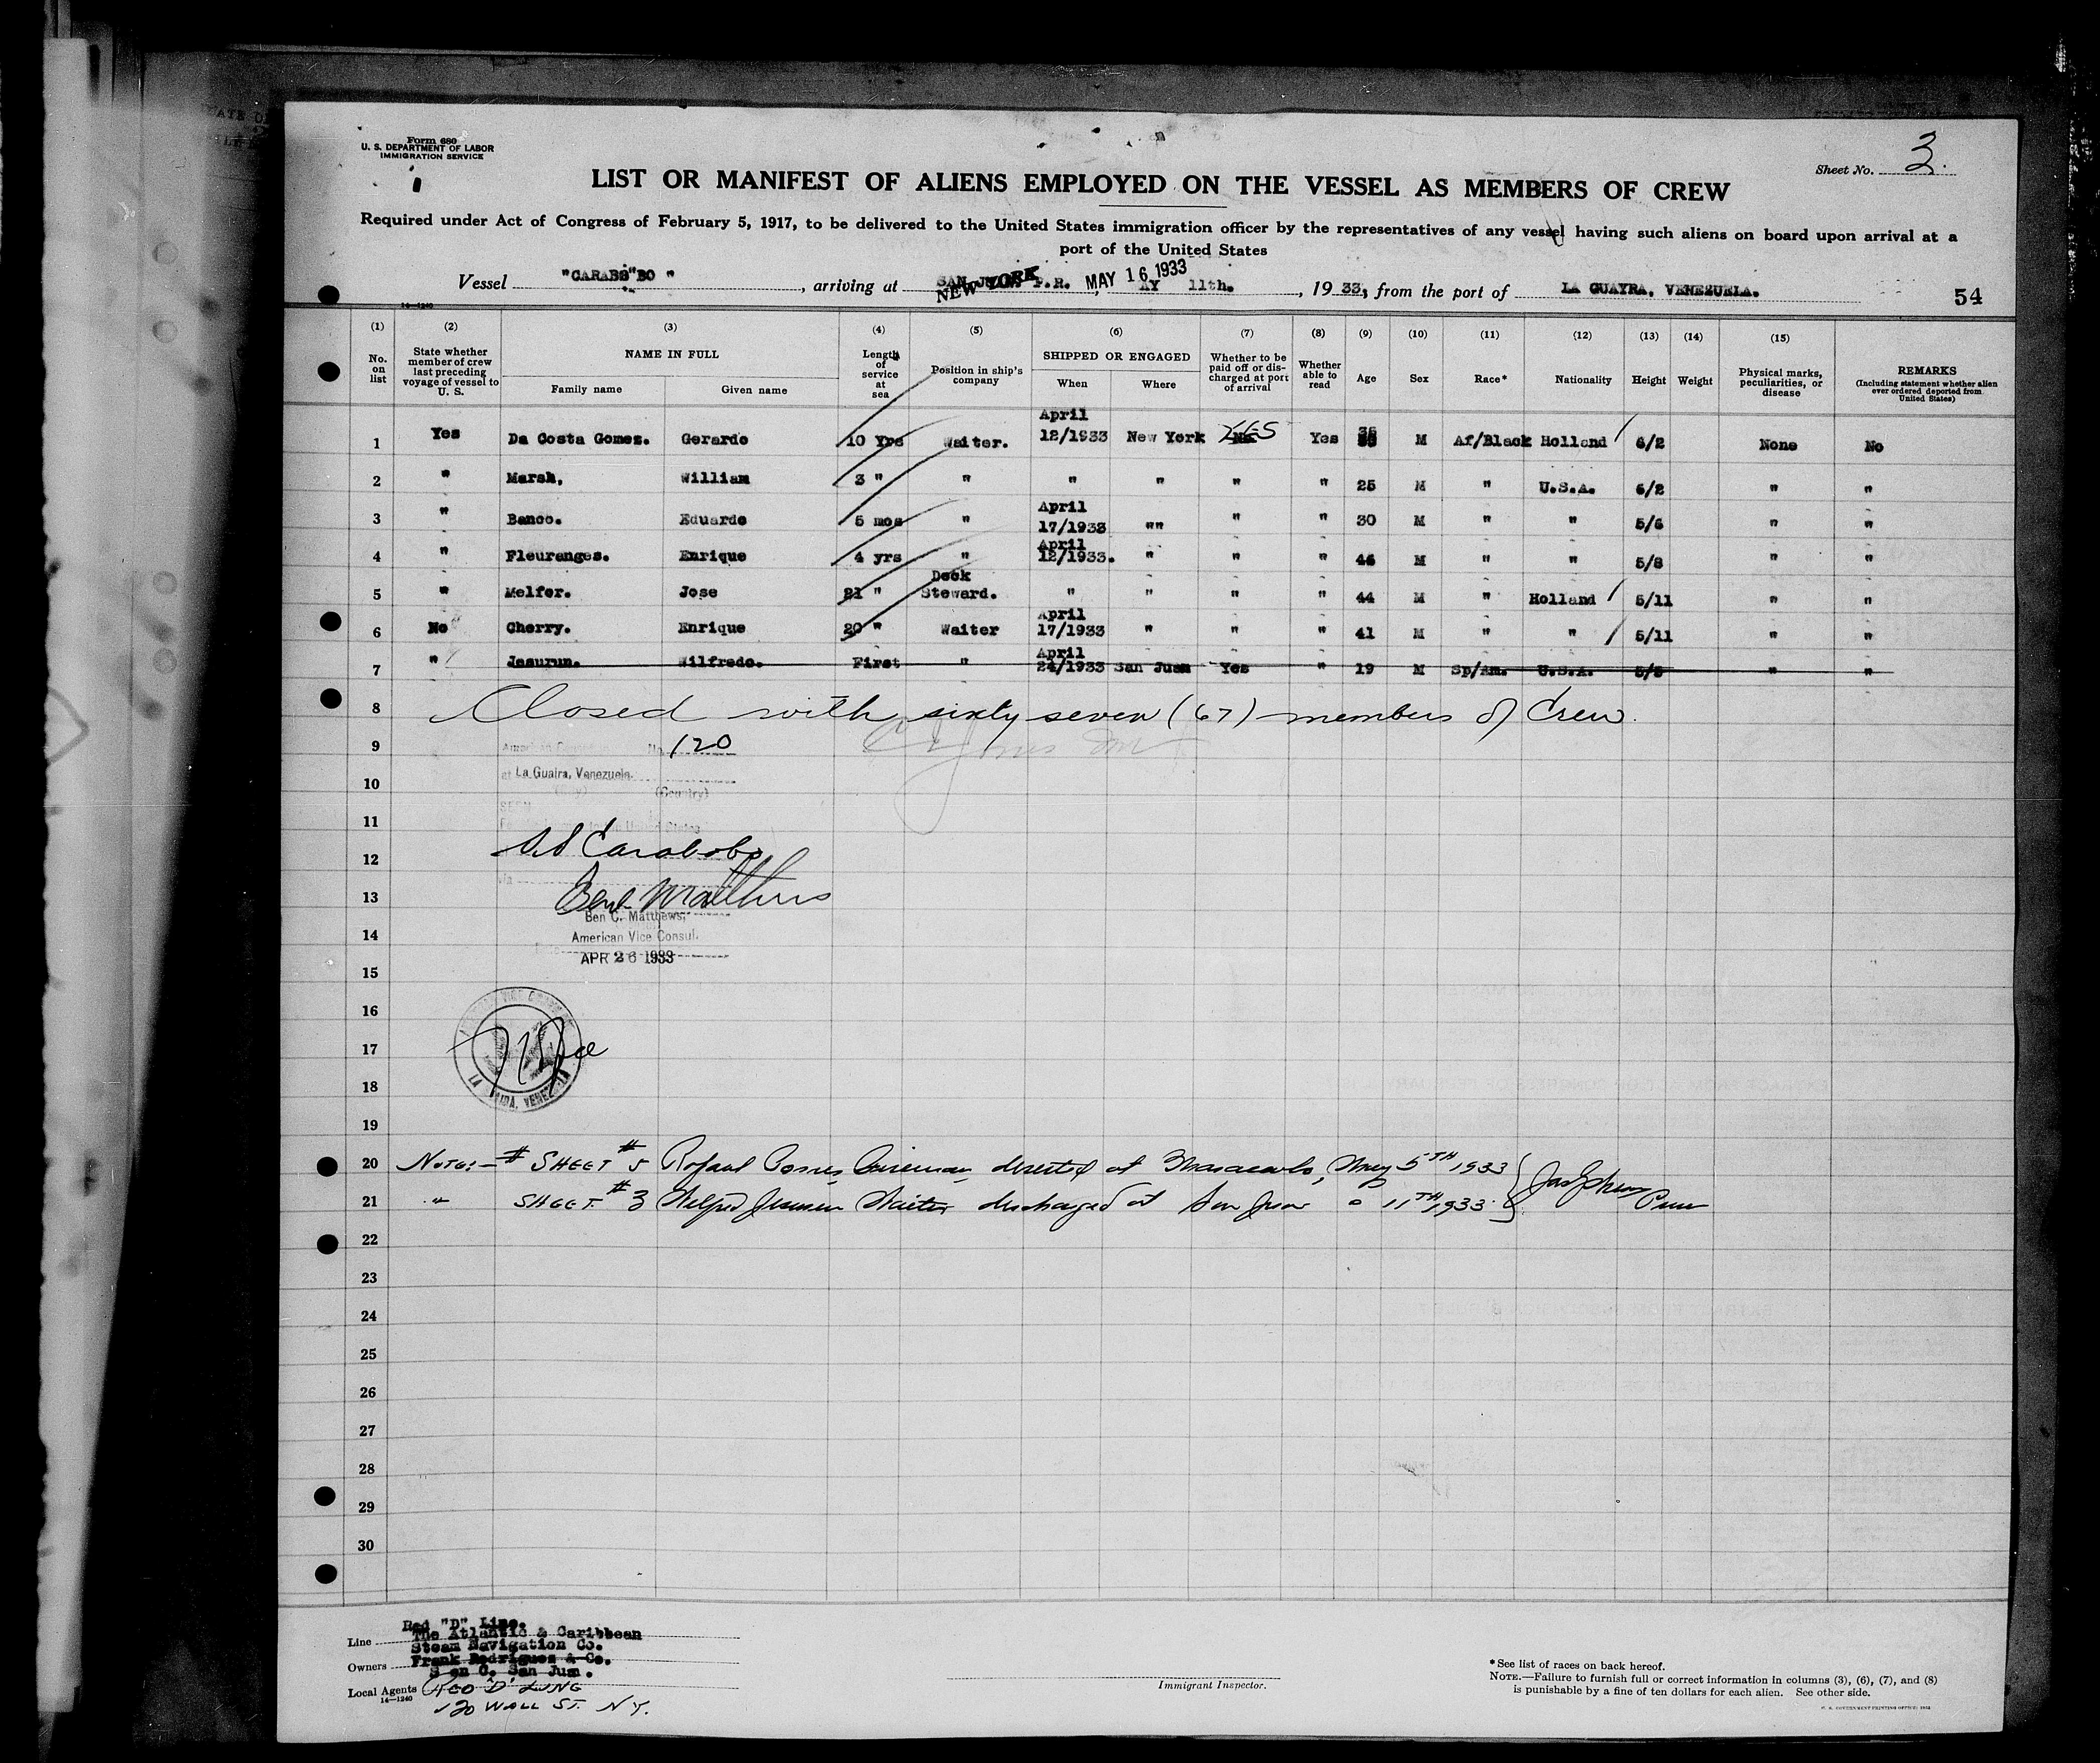 Form 680
U. S. DEPARTMENT OF LABOR
IMMIGRATION SERVICE
Sheet No. 3.
LIST OR MANIFEST OF ALIENS EMPLOYED ON THE VESSEL AS MEMBERS OF CREW
Required under Act of Congress of February 5, 1917, to be delivered to the United States immigration officer by the representatives of any vessel having such aliens on board upon arrival at a
port of the United States
Vessel "CARABO"BO ", arriving at SAN JUAN P.R. NEW YORK MAY 16 1933 AY 11th., 1933, from the port of LA GUAYRA, VENEZUELA.
54
14—1240
(1) (2) (3) (4) (5) (6) (7) (8) (9) (10) (11) (12) (13) (14) (15)
No. on list
State whether member of crew last preceding voyage of vessel to U. S.
NAME IN FULL
Family name Given name
Length of service at sea
Position in ship's company
SHIPPED OR ENGAGED
When Where
Whether to be paid off or discharged at port of arrival
Whether able to read
Age Sex Race* Nationality Height Weight
Physical marks, peculiarities, or disease
REMARKS
(Including statement whether alien ever ordered deported from United States)
1 Yes Da Costa Gomez. Gerardo 10 Yrs Waiter. April 12/1933 New York No YES Yes 36 M Af/Black Holland 6/2 None No
2 " Marsh, William 3 " " " " " " 25 M " U.S.A. 6/2 " "
3 " Banco. Eduardo 5 mos " April 17/1933 "" " " 30 M " " 5/6 " "
4 " Fleuranges. Enrique 4 yrs " April 12/1933. " " " 44 M " " 5/8 " "
5 " Melfor. Jose 21 " Deck Steward. " " " " 44 M " Holland 5/11 " "
6 No Cherry. Enrique 20 " Waiter April 17/1933 " " " 41 M " " 5/11 " "
7 " Jesurun. Wilfredo. First " April 24/1933 San Juan Yes " 19 M Sp/Am. U.S.A. 5/8 " "
8 Closed with sixty seven (67) members of Crew.
9 American No. 120
10 at La Guaira, Venezuela.
(City) (Country)
11 SEEN
12 SS Carabobo
13 via Ben C Matthews
Ben C. Matthews,
14 American Vice Consul.
APR 26 1933
15
16
17
LA GUAIRA, VENEZUELA
18
19
20 NOTE:— # SHEET # 5 Rafael Fireman, deserted at Maracaibo, May 5TH 1933
21 " SHEET # 3 Wilfred Jesurun Waiter discharged at San Juan " 11TH 1933.
22
23
24
25
26
27
28
29
30
Line Red "D" Line.
The Atlantic & Caribbean
Steam Navigation Co.
Owners Frank Rodrigues & Co.
S en C. San Jum.
Local Agents RED "D" LINE
14—1240
120 WALL ST. N.Y.
Immigrant Inspector.
*See list of races on back hereof.
NOTE.—Failure to furnish full or correct information in columns (3), (6), (7), and (8)
is punishable by a fine of ten dollars for each alien. See other side.
U. S. GOVERNMENT PRINTING OFFICE: 1932